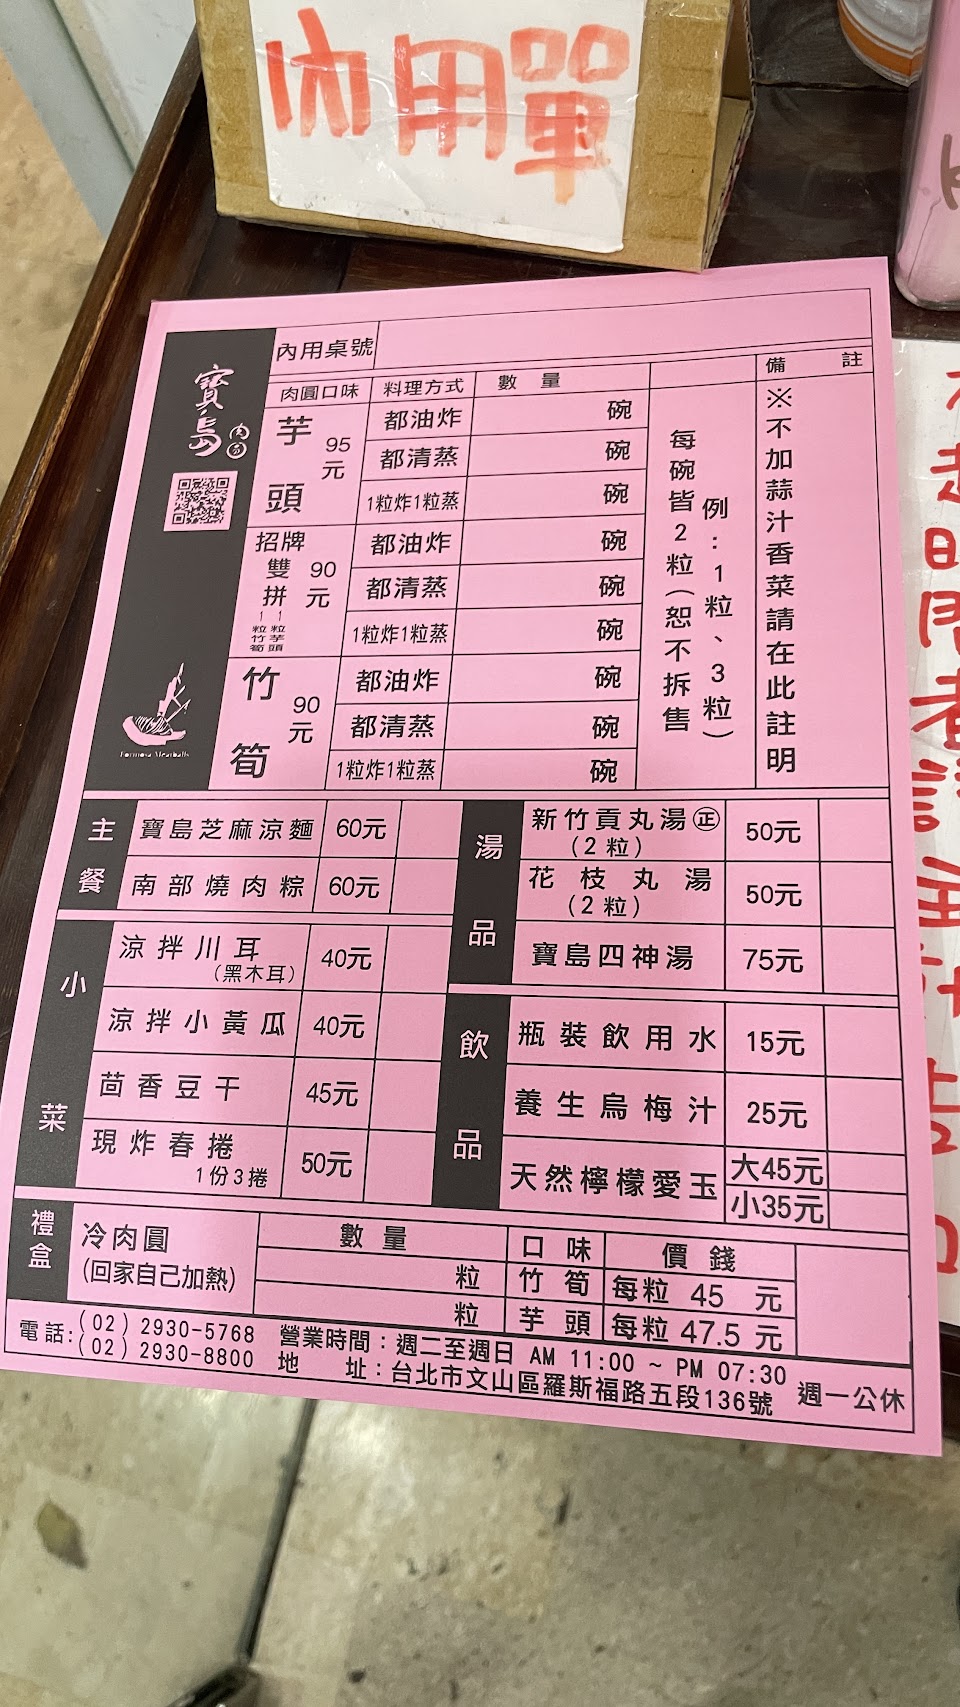 內用單
寶島肉圓
Formosa Meatballs
內用桌號
肉圓口味 料理方式 數量 備註
芋頭 95元
都油炸 碗
都清蒸 碗
1粒炸1粒蒸 碗
招牌雙拼 90元
1粒竹筍 1粒芋頭
都油炸 碗
都清蒸 碗
1粒炸1粒蒸 碗
竹筍 90元
都油炸 碗
都清蒸 碗
1粒炸1粒蒸 碗
每碗皆2粒(恕不拆售
例:1粒、3粒)
※不加蒜汁香菜請在此註明
主餐
寶島芝麻涼麵 60元
南部燒肉粽 60元
小菜
涼拌川耳 40元
(黑木耳)
涼拌小黃瓜 40元
茴香豆干 45元
現炸春捲 50元
1份3捲
湯品
新竹貢丸湯㊣ 50元
(2粒)
花枝丸湯 50元
(2粒)
寶島四神湯 75元
飲品
瓶裝飲用水 15元
養生烏梅汁 25元
天然檸檬愛玉 大45元
小35元
禮盒
冷肉圓
(回家自己加熱)
數量 口味 價錢
粒 竹筍 每粒 45 元
粒 芋頭 每粒 47.5 元
電話:(02)2930-5768
(02)2930-8800
營業時間:週二至週日 AM 11:00 ~ PM 07:30
地址:台北市文山區羅斯福路五段136號
週一公休